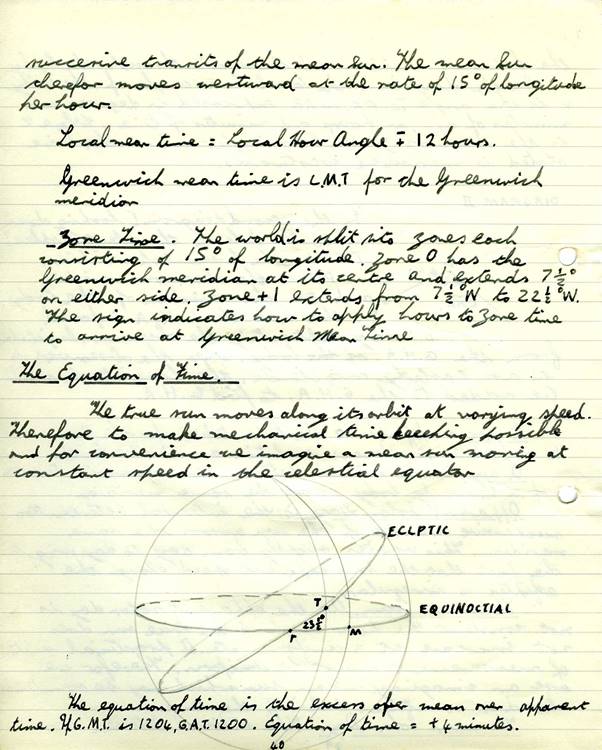 successive transits of the mean Sun. The mean Sun
therefor moves westward at the rate of 15° of longitude
per hour.
Local mean time = Local Hour Angle ∓ 12 hours.
Greenwich mean time is L.M.T for the Greenwich
meridian
Zone Time. The world is split into zones each
consisting of 15° of longitude. Zone 0 has the
Greenwich meridian at its centre and extends 7½°
on either side. Zone +1 extends from 7½°W to 22½°W.
The sign indicates how to apply hours to Zone time
to arrive at Greenwich Mean Time
The Equation of Time.
The true sun moves along its orbit at varying speed.
Therefore to make mechanical time keeping possible
and for convenience we imagine a mean sun moving at
constant speed in the celestial equator
ECLPTIC
T
EQUINOCTIAL
23½°
r
M
The equation of time is the excess of mean over apparent
time. If G.M.T. is 1204, G.A.T. 1200. Equation of time = +4 minutes.
40